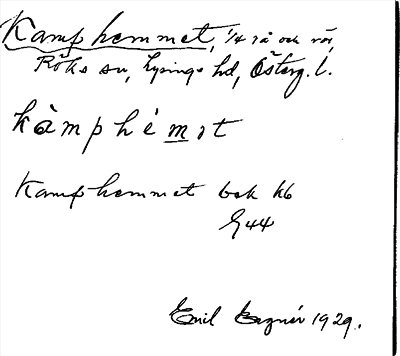 Kamphemmet, 1/4 rå och rör,
Röks sn, Lysings hd, Österg. l.
kàmphém͟ǝt
Kamphemmet bek kb
G44
Emil 1929.